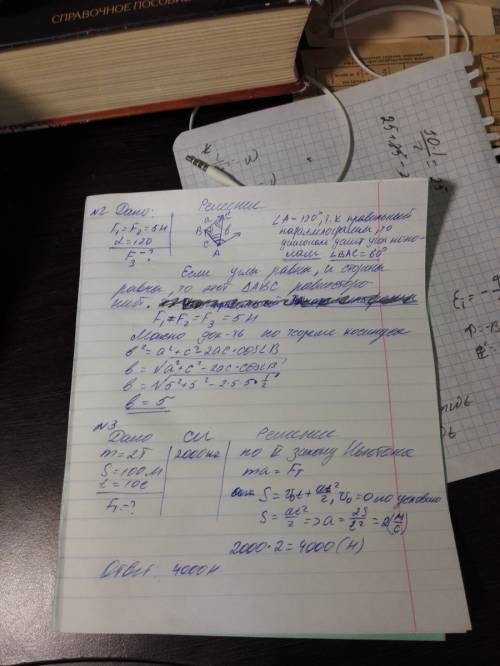 СПРАВОЧНОЕ ПОСОБИЕ
25+25=2
50·1
N2 Дано: Решение
F₁=F₂=5Н
α=120
F₃-?
∠A=120°, т.к правильный
параллелограмм, то
диагональ делит угол попо-
лам ∠BAC=60°
Если углы равны, и стороны
равны, то этот ΔABC равносторо-
нний.
F₁=F₂=F₃=5Н
Можно док-ть по теореме косинусов
b²=a²+c²-2ac·cos∠B
b=√a²+c²-2ac·cos∠B
b=√5²+5²-2·5·5·1/2
b=5
N3
Дано СИ Решение
m=2т 2000кг по II закону Ньютона
S=100м ma=Fт
t=10с
Fт-?
S=V₀t+at²/2, V₀=0 по условию
S=at²/2=>a=2S/t²=2(м/с)
2000·2=4000(Н)
Ответ: 4000Н